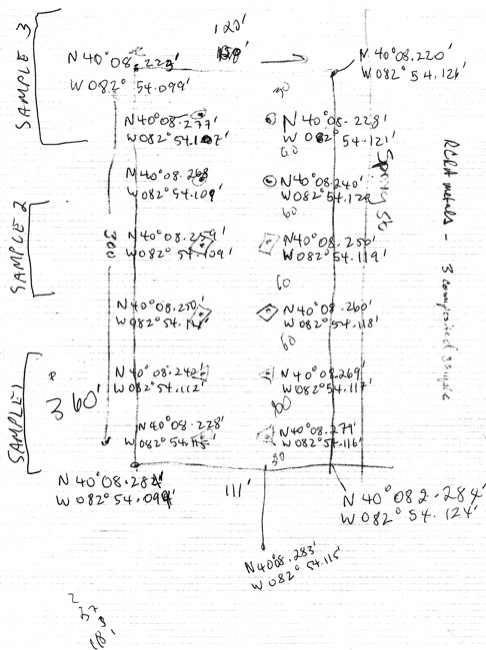 120'
SAMPLE 3
N 40°08.223'
W 082° 54.099'
N 40°08.220'
W 082° 54.126'
30
N 40°08.277'
W 082° 54.107'
N 40°08.228'
W 082° 54.121'
60
N 40°08.268
W 082° 54.109'
N 40°08.240'
W 082° 54.120
60
Spring St
RCRA metals - 3 composited sample
SAMPLE 2
300
N 40°08.259'
W 082° 54.109'
N 40°08.250'
W 082° 54.119'
60
N 40°08.250'
N 40°08.260'
W 082° 54.118'
60
SAMPLE 1
360'
N 40°08.240'
W 082° 54.112'
N 40°08.269'
W 082° 54.117'
N 40°08.228'
W 082° 54.115'
N 40°08.279'
W 082° 54.116'
30
N 40°08.284'
W 082° 54.099'
111'
N 40°082.284'
W 082° 54.124'
N 4008.283'
W 082° 54.115'